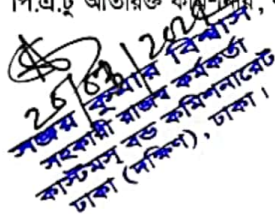 পি.এ.টু অতিরিক্ত কমিশনার,
২৫/০৬/২০২৪
সঞ্জয় কুমার বিশ্বাস
সহকারী রাজস্ব কর্মকর্তা
কাস্টমস্ বন্ড কমিশনারেট
ঢাকা (দক্ষিণ), ঢাকা।